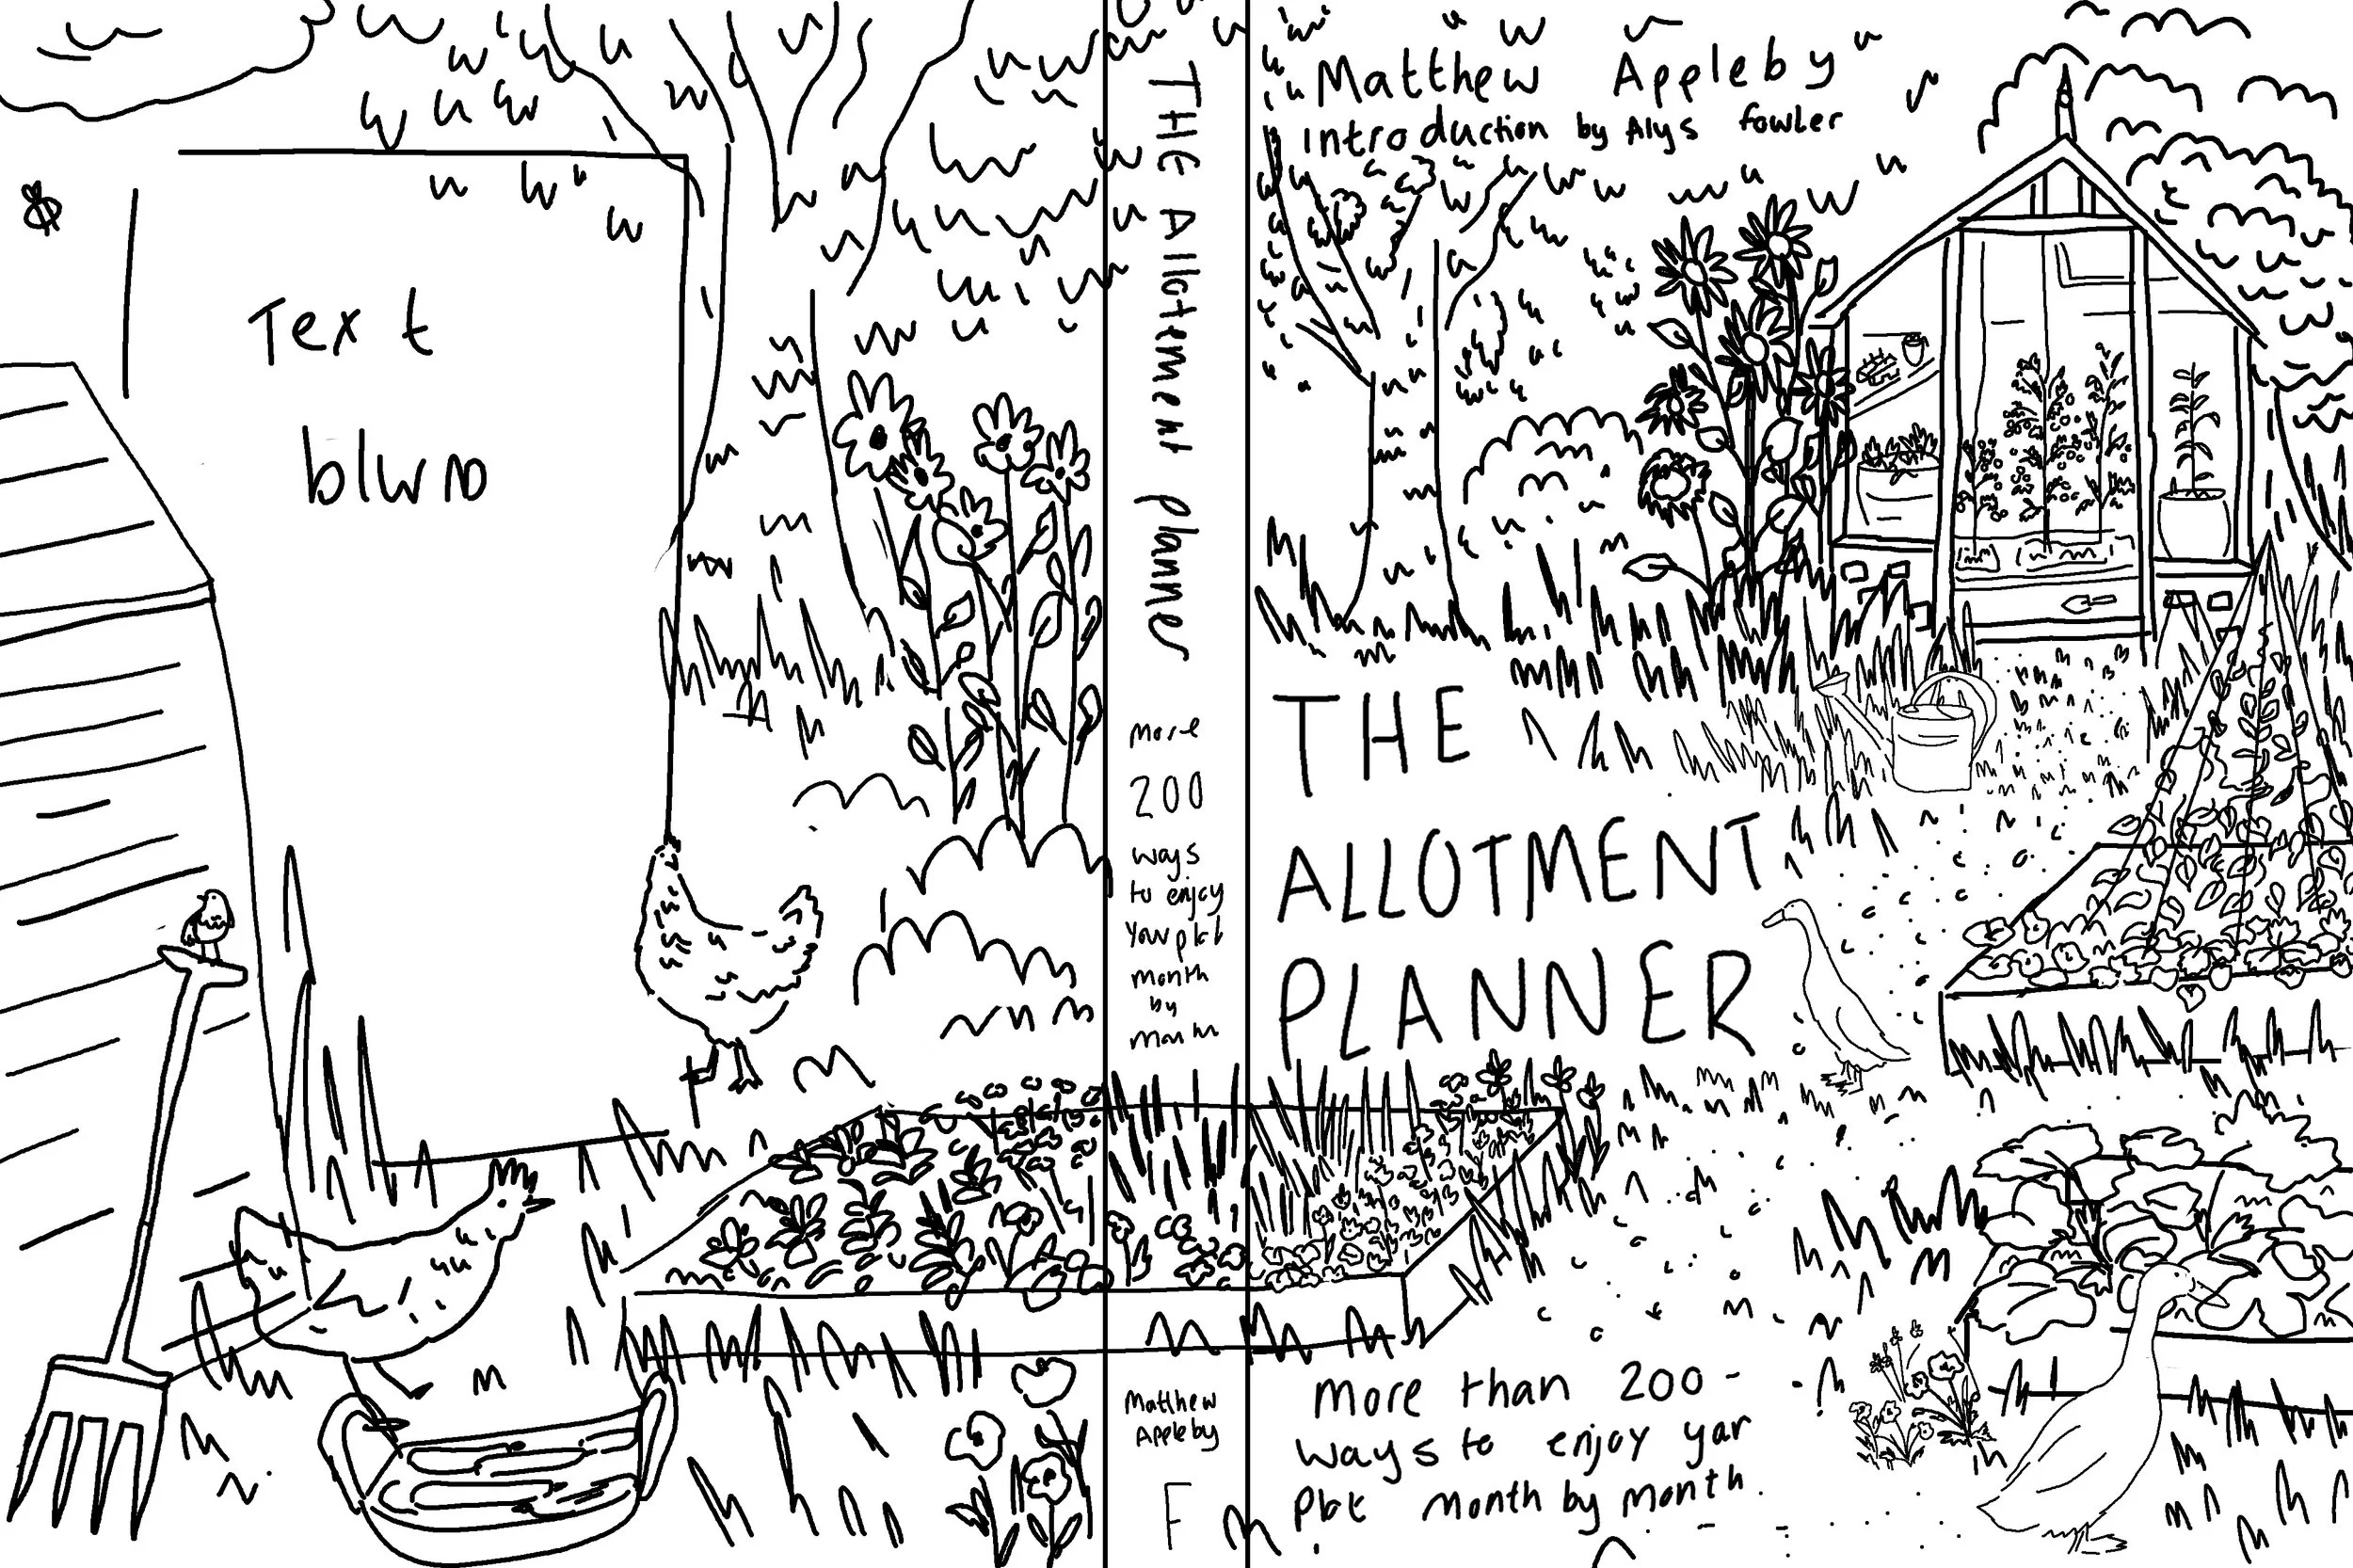 Text
blurb
THE Allotment planner
more
200
ways
to enjoy
your plot
month
by
month
Matthew
Appleby
F
Matthew Appleby
introduction by Alys fowler
THE
ALLOTMENT
PLANNER
More than 200-
ways to enjoy yar
plot month by month.